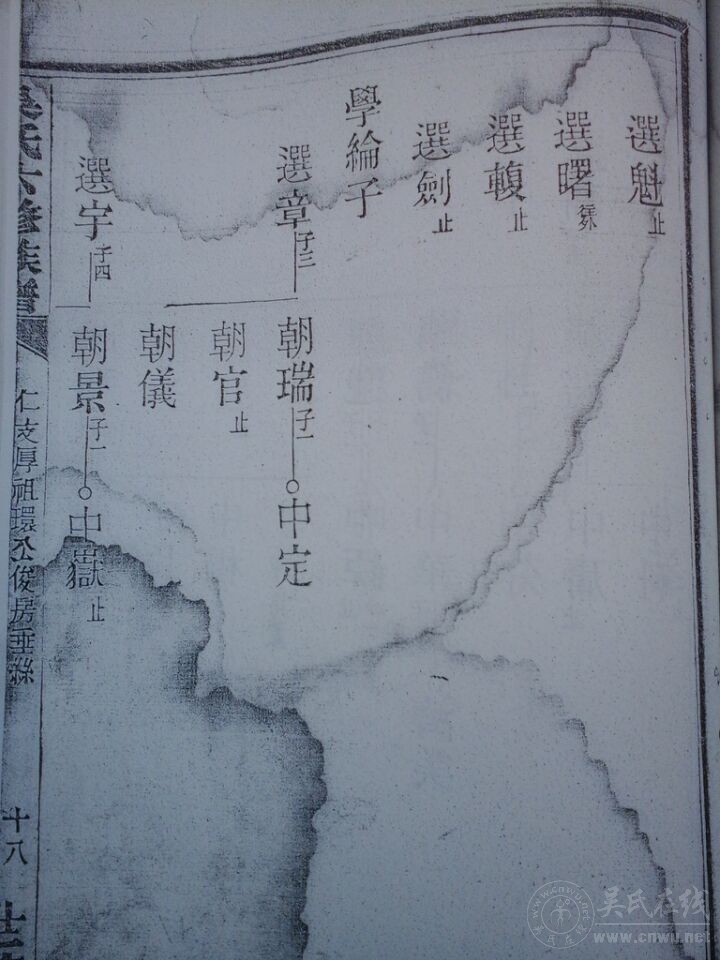 選魁止
選曙
選輹止
選劍止
學綸子
選章子三
朝瑞子一
中定
朝官止
朝儀
選宇子四
朝景子一
中嶽止
吳氏六修族譜
仁支厚祖環公俊房垂絲
十八
吴氏在线
www.cnwu.net